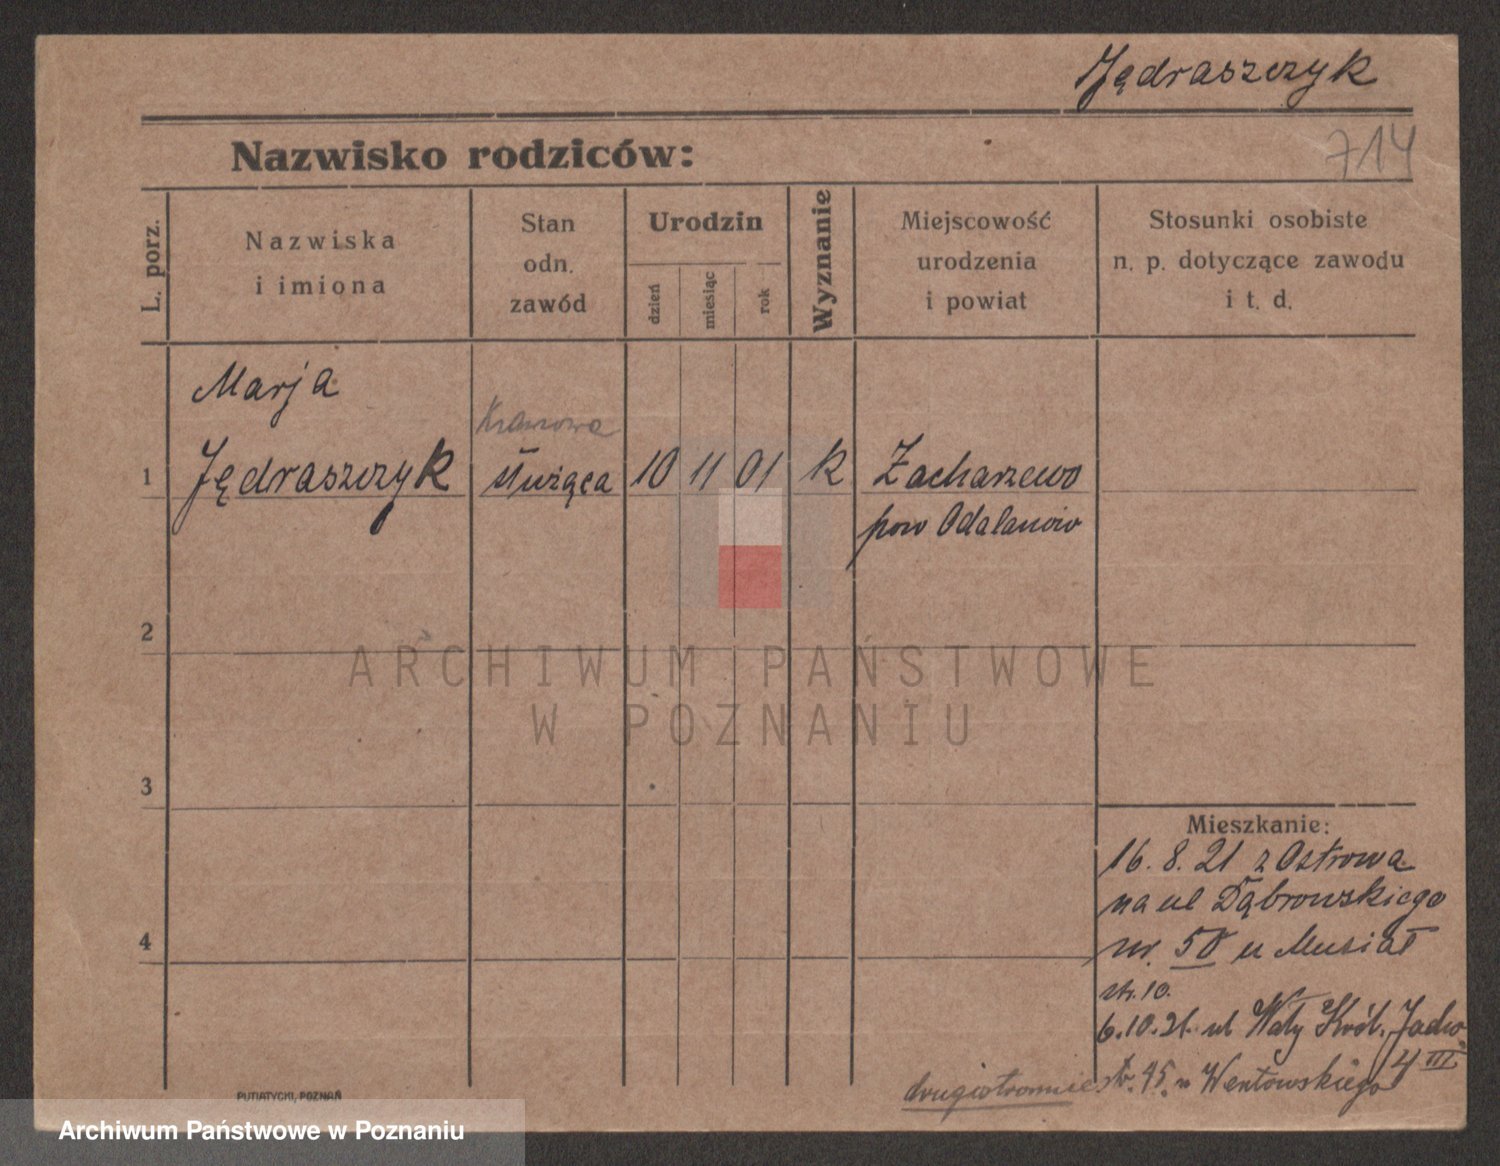 Jędraszczyk
714
Nazwisko rodziców:
L. porz.
Nazwiska
i imiona
Stan
odn.
zawód
Urodzin
dzień
miesiąc
rok
Wyznanie
Miejscowość
urodzenia
i powiat
Stosunki osobiste
n. p. dotyczące zawodu
i t. d.
Marja
1 Jędraszczyk służąca 10 11 01 k Zacharzewo
pow Odalanów
2
ARCHIWUM PAŃSTWOWE
W POZNANIU
3
Mieszkanie:
16. 8. 21 z Ostrowa
na ul Dąbrowskiego
nr. 50 u Musiał
str. 10.
6.10.21. ul Wały Król. Jadw.
4 III
4
drugostronnie str. 45. u Wentowskiego
PUTIATYCKI, POZNAŃ
Archiwum Państwowe w Poznaniu